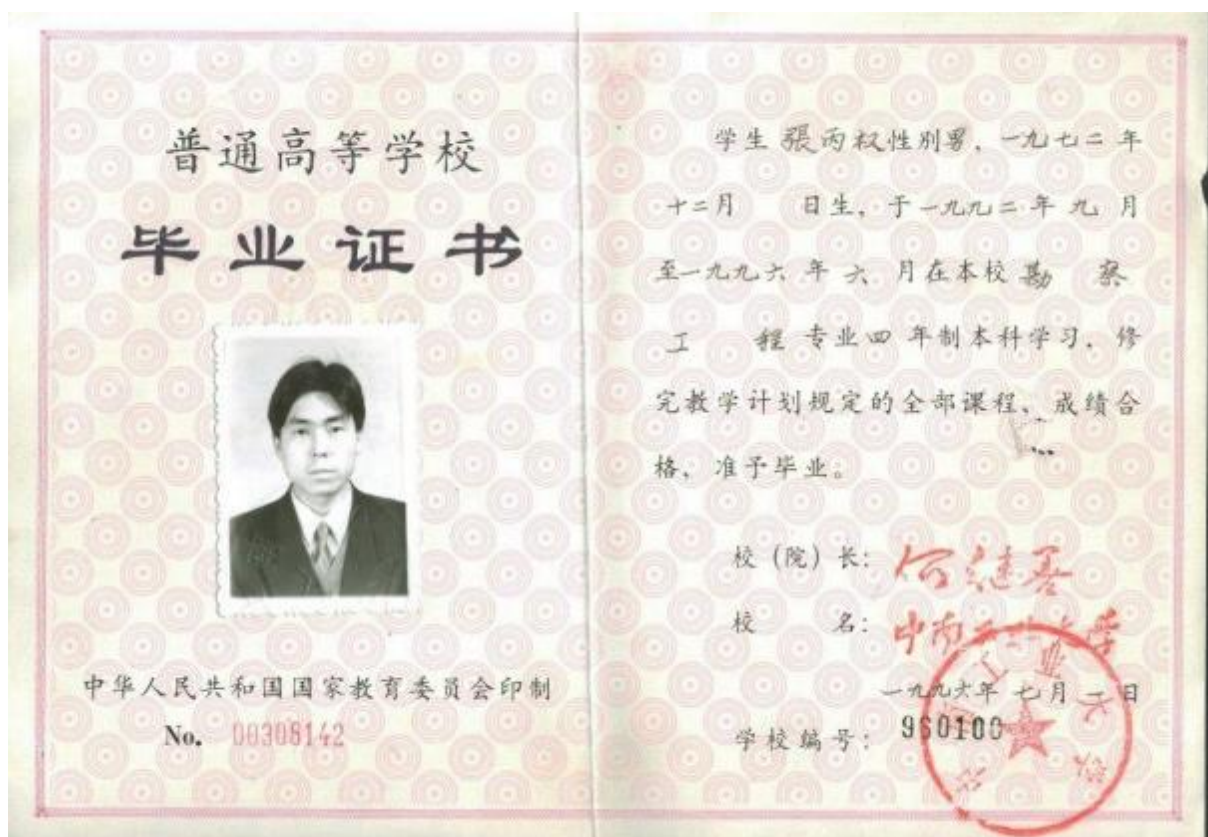 普通高等学校
毕业证书
中华人民共和国国家教育委员会印制
No. 00308142
学生 張丙权性别男、一九七二年
十二月 日生，于一九九二年九月
至一九九六年六月在本校勘察
工程专业四年制本科学习，修
完教学计划规定的全部课程、成绩合
格，准予毕业。
校（院）长：何继善
校 名：中南工业大学
一九九六年七月 日
学校编号：960100